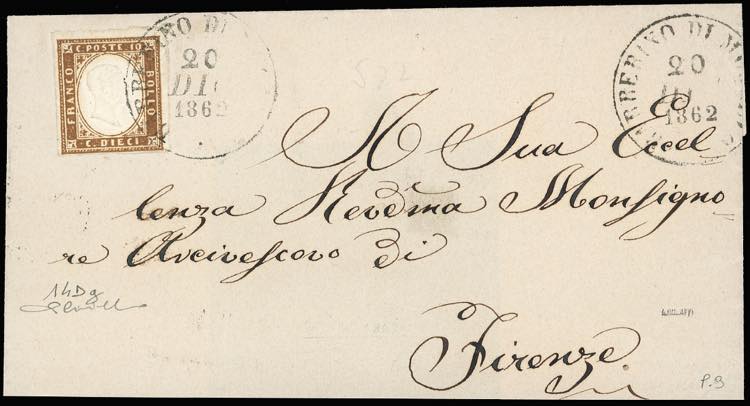 C POSTE 10
FRANCO
BOLLO
C. DIECI
20
DIC
1862
RBERINO DI M
20
1862
A Sua Eccel
lenza Revdma Monsigno
re Arcivescovo di
Firenze
14Dg
P.9